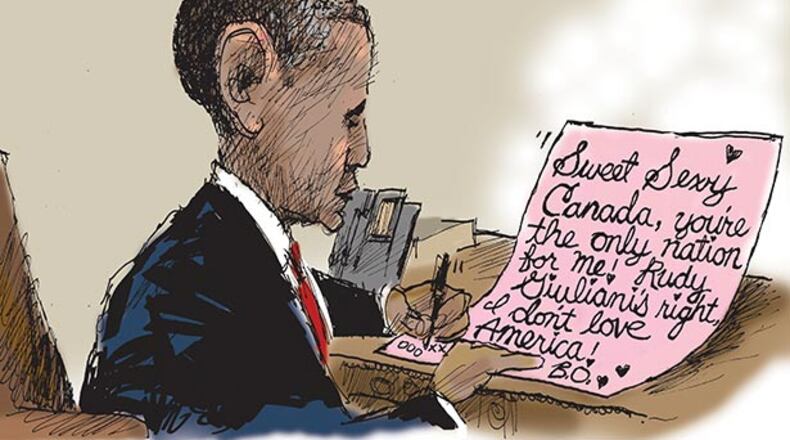 Sweet Sexy
Canada, you're
the only nation
for me! Rudy
Giuliani's right,
I don't love
America!
B.O.
OOO XX